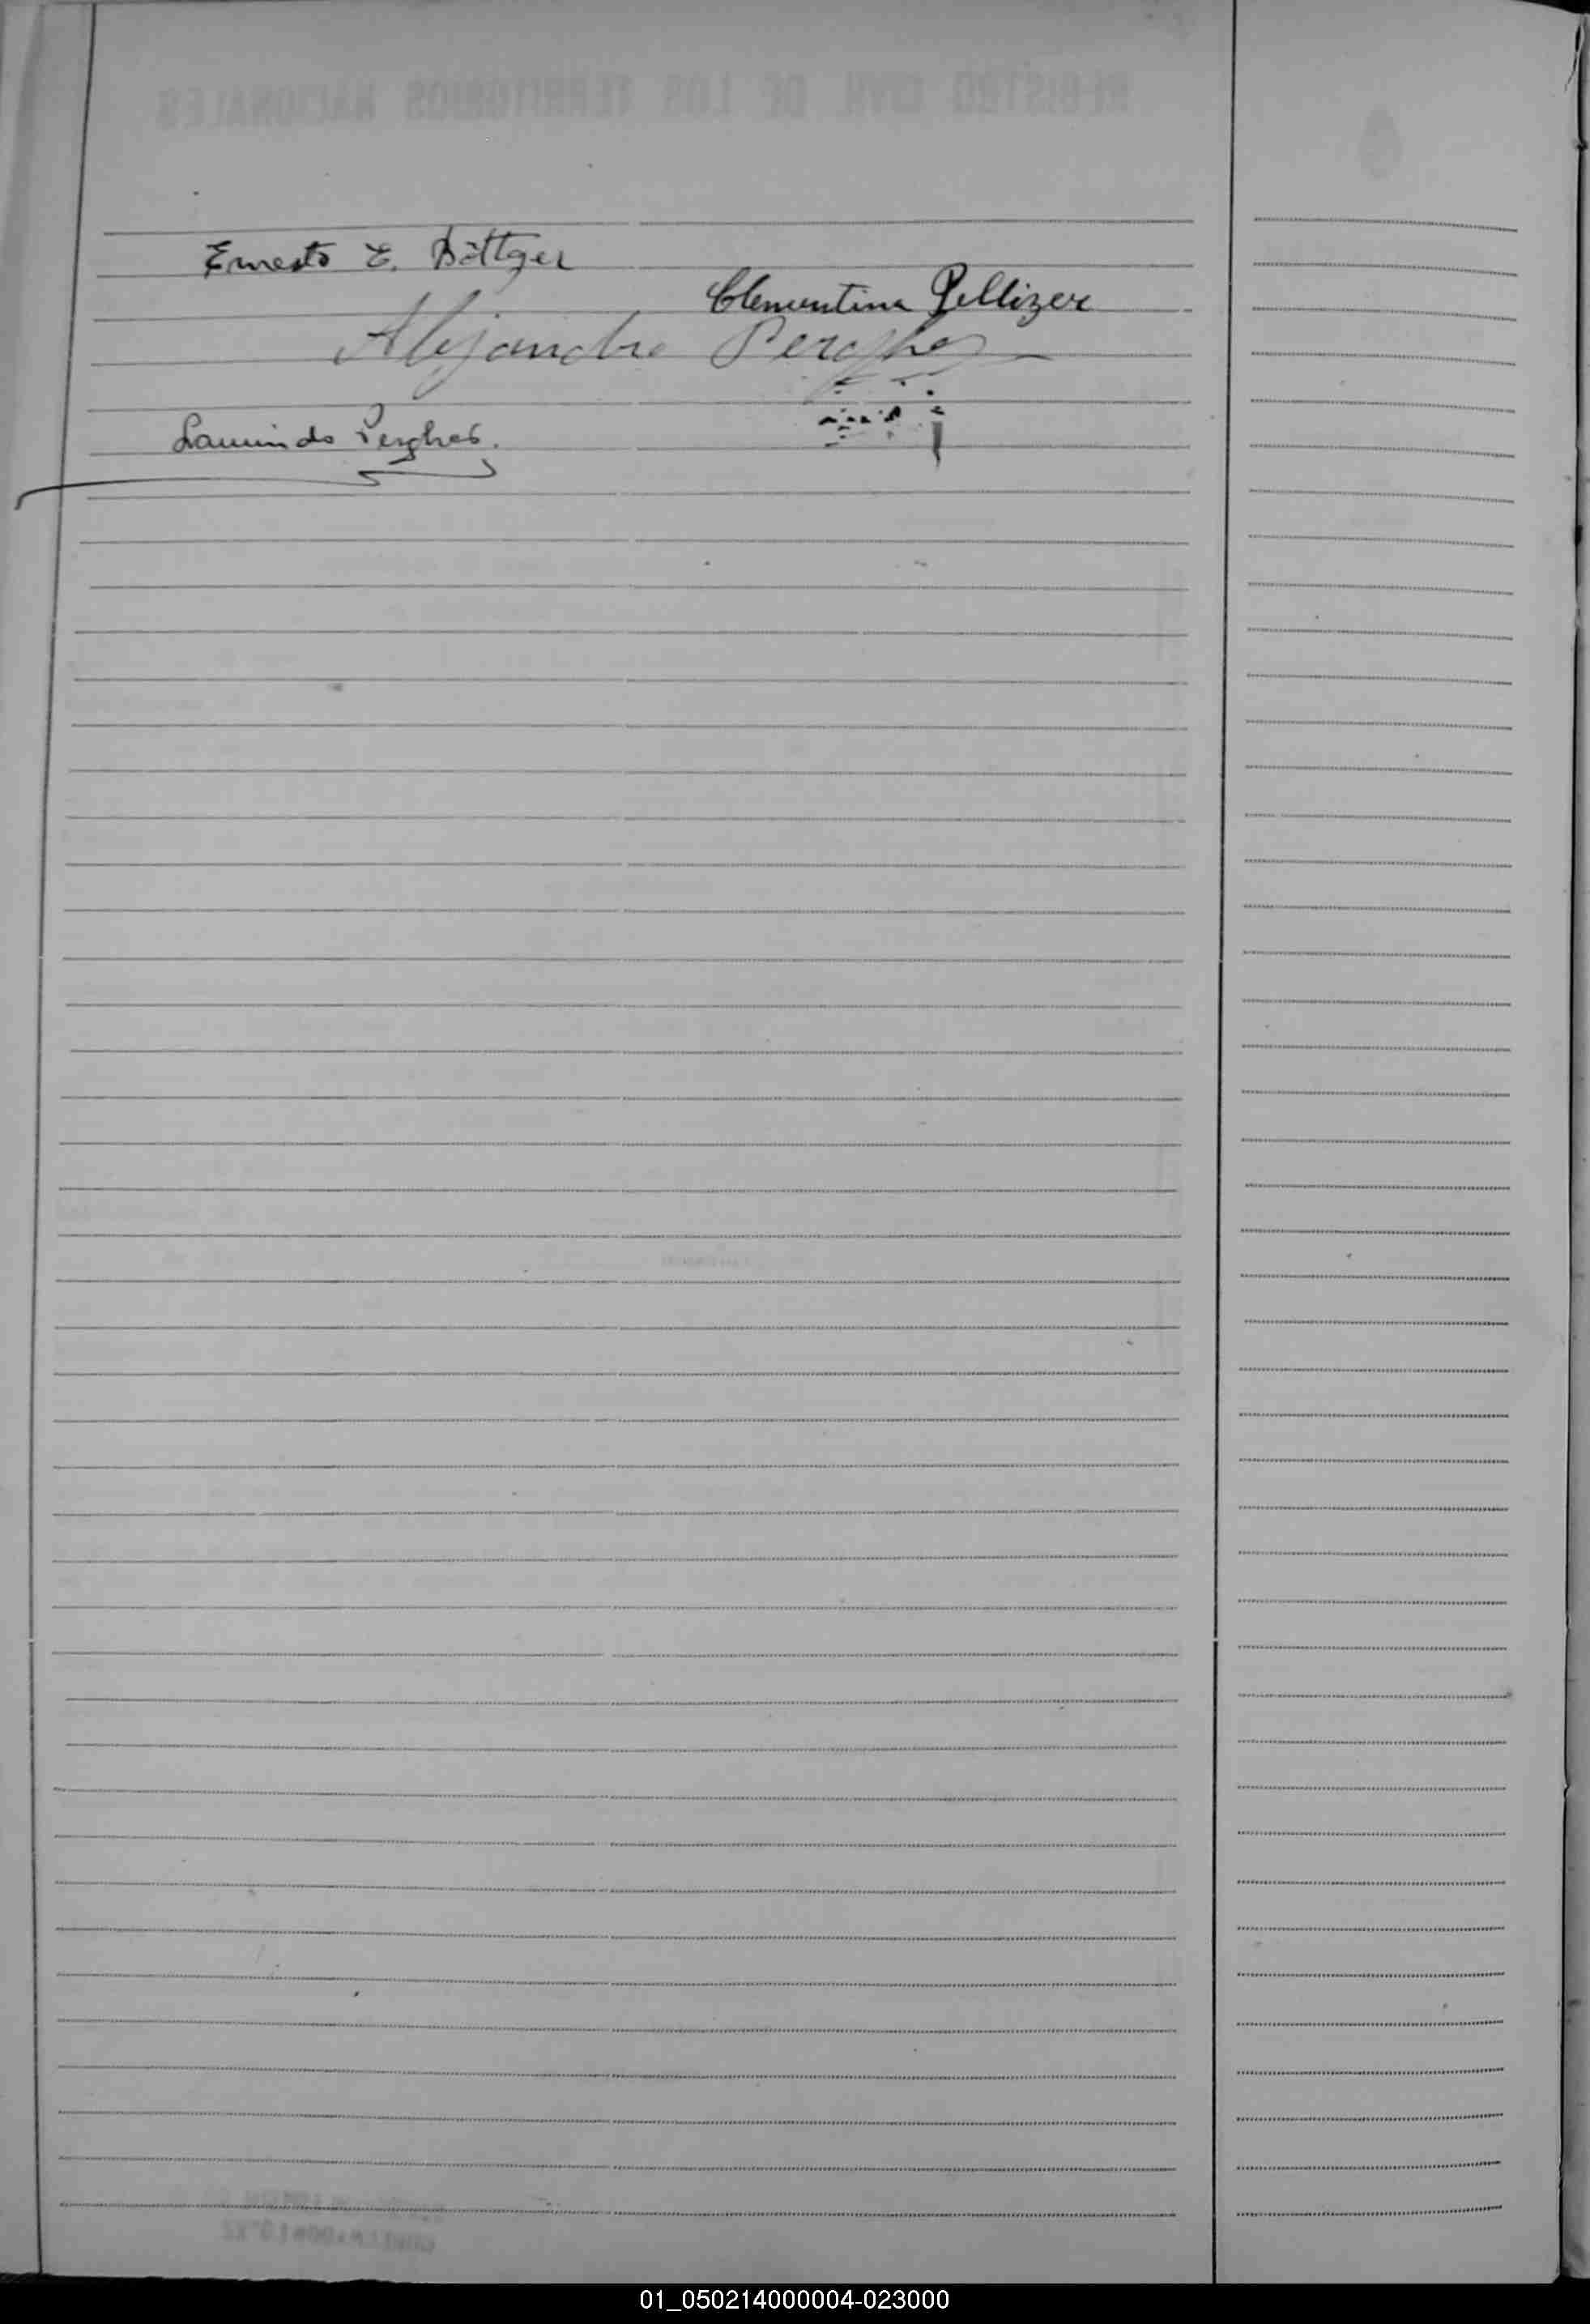 Ernesto E. Böttger
Clementina Pellizer
Alejandro Perghes
Laurindo Perghes.
01_050214000004-023000